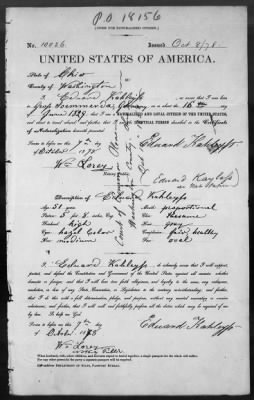 P O 18156
[FORM FOR NATURALIZED CITIZEN.]
No. 10026 Issued Oct 8/78
UNITED STATES OF AMERICA.
State of Ohio
County of Washington
I, Edward Kahleyss, do swear that I was born
in Gross Germany on or about the 16th day of
June 1827; that I am a NATURALIZED AND LOYAL CITIZEN of the United States,
and about to travel abroad; and further, that I am the IDENTICAL PERSON described in the Certificate
of Naturalization herewith presented.
Sworn to before me this 7th day
of October 1878
Wm Lorey
Notary Public
Edward Kahleyss
Edward
Description of Edward Kahleyss
Age: 51 years
Stature: 5 feet inches, Eng.
Forehead: high
Eyes: hazel Color
Nose: medium
Mouth: proportional
Chin:
Hair: gray
Complexion: fair, healthy
Face: oval
I, Edward Kahleyss, do solemnly swear that I will support,
protect, and defend the Constitution and Government of the United States against all enemies, whether
domestic or foreign; and that I will bear true faith, allegiance, and loyalty to the same, any ordinance,
resolution, or law of any State, Convention, or Legislature to the contrary notwithstanding; and further,
that I do this with a full determination, pledge, and purpose, without any mental reservation or evasion
whatsoever; and further, that I will well and faithfully perform all the duties which may be required of me
by law. So help me God.
Sworn to before me this 7th day
of October 1878
Edward Kahleyss
Wm Lorey
Notary Public
DEPARTMENT OF STATE, PASSPORT BUREAU.